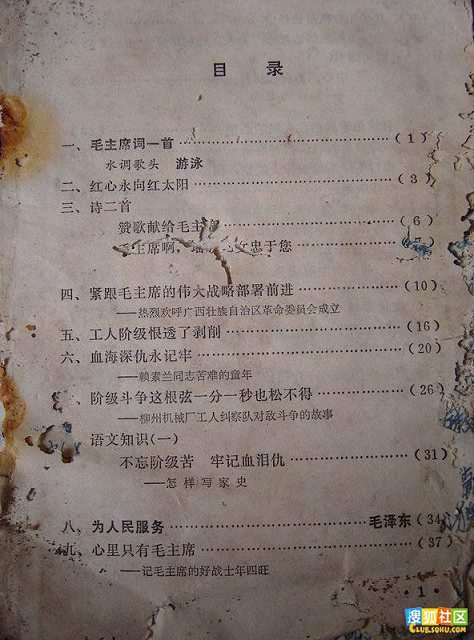 目 录
一、毛主席词一首…………………………(1)
水调歌头 游泳
二、红心永向红太阳…………………………(3)
三、诗二首
赞歌献给毛主席…………………………(6)
主席啊, 忠于您…………
四、紧跟毛主席的伟大战略部署前进…………(10)
——热烈欢呼广西壮族自治区革命委员会成立
五、工人阶级恨透了剥削…………………………(16)
六、血海深仇永记牢…………………………(20)
——赖素兰同志苦难的童年
、阶级斗争这根弦一分一秒也松不得…………(26)
——柳州机械厂工人纠察队对敌斗争的故事
语文知识(一)
不忘阶级苦 牢记血泪仇…………………(31)
——怎样写家史
八、为人民服务…………………………毛泽东(34)
九、心里只有毛主席…………………………(37)
——记毛主席的好战士年四旺
·1·
搜狐社区
CLUB.SOHU.COM